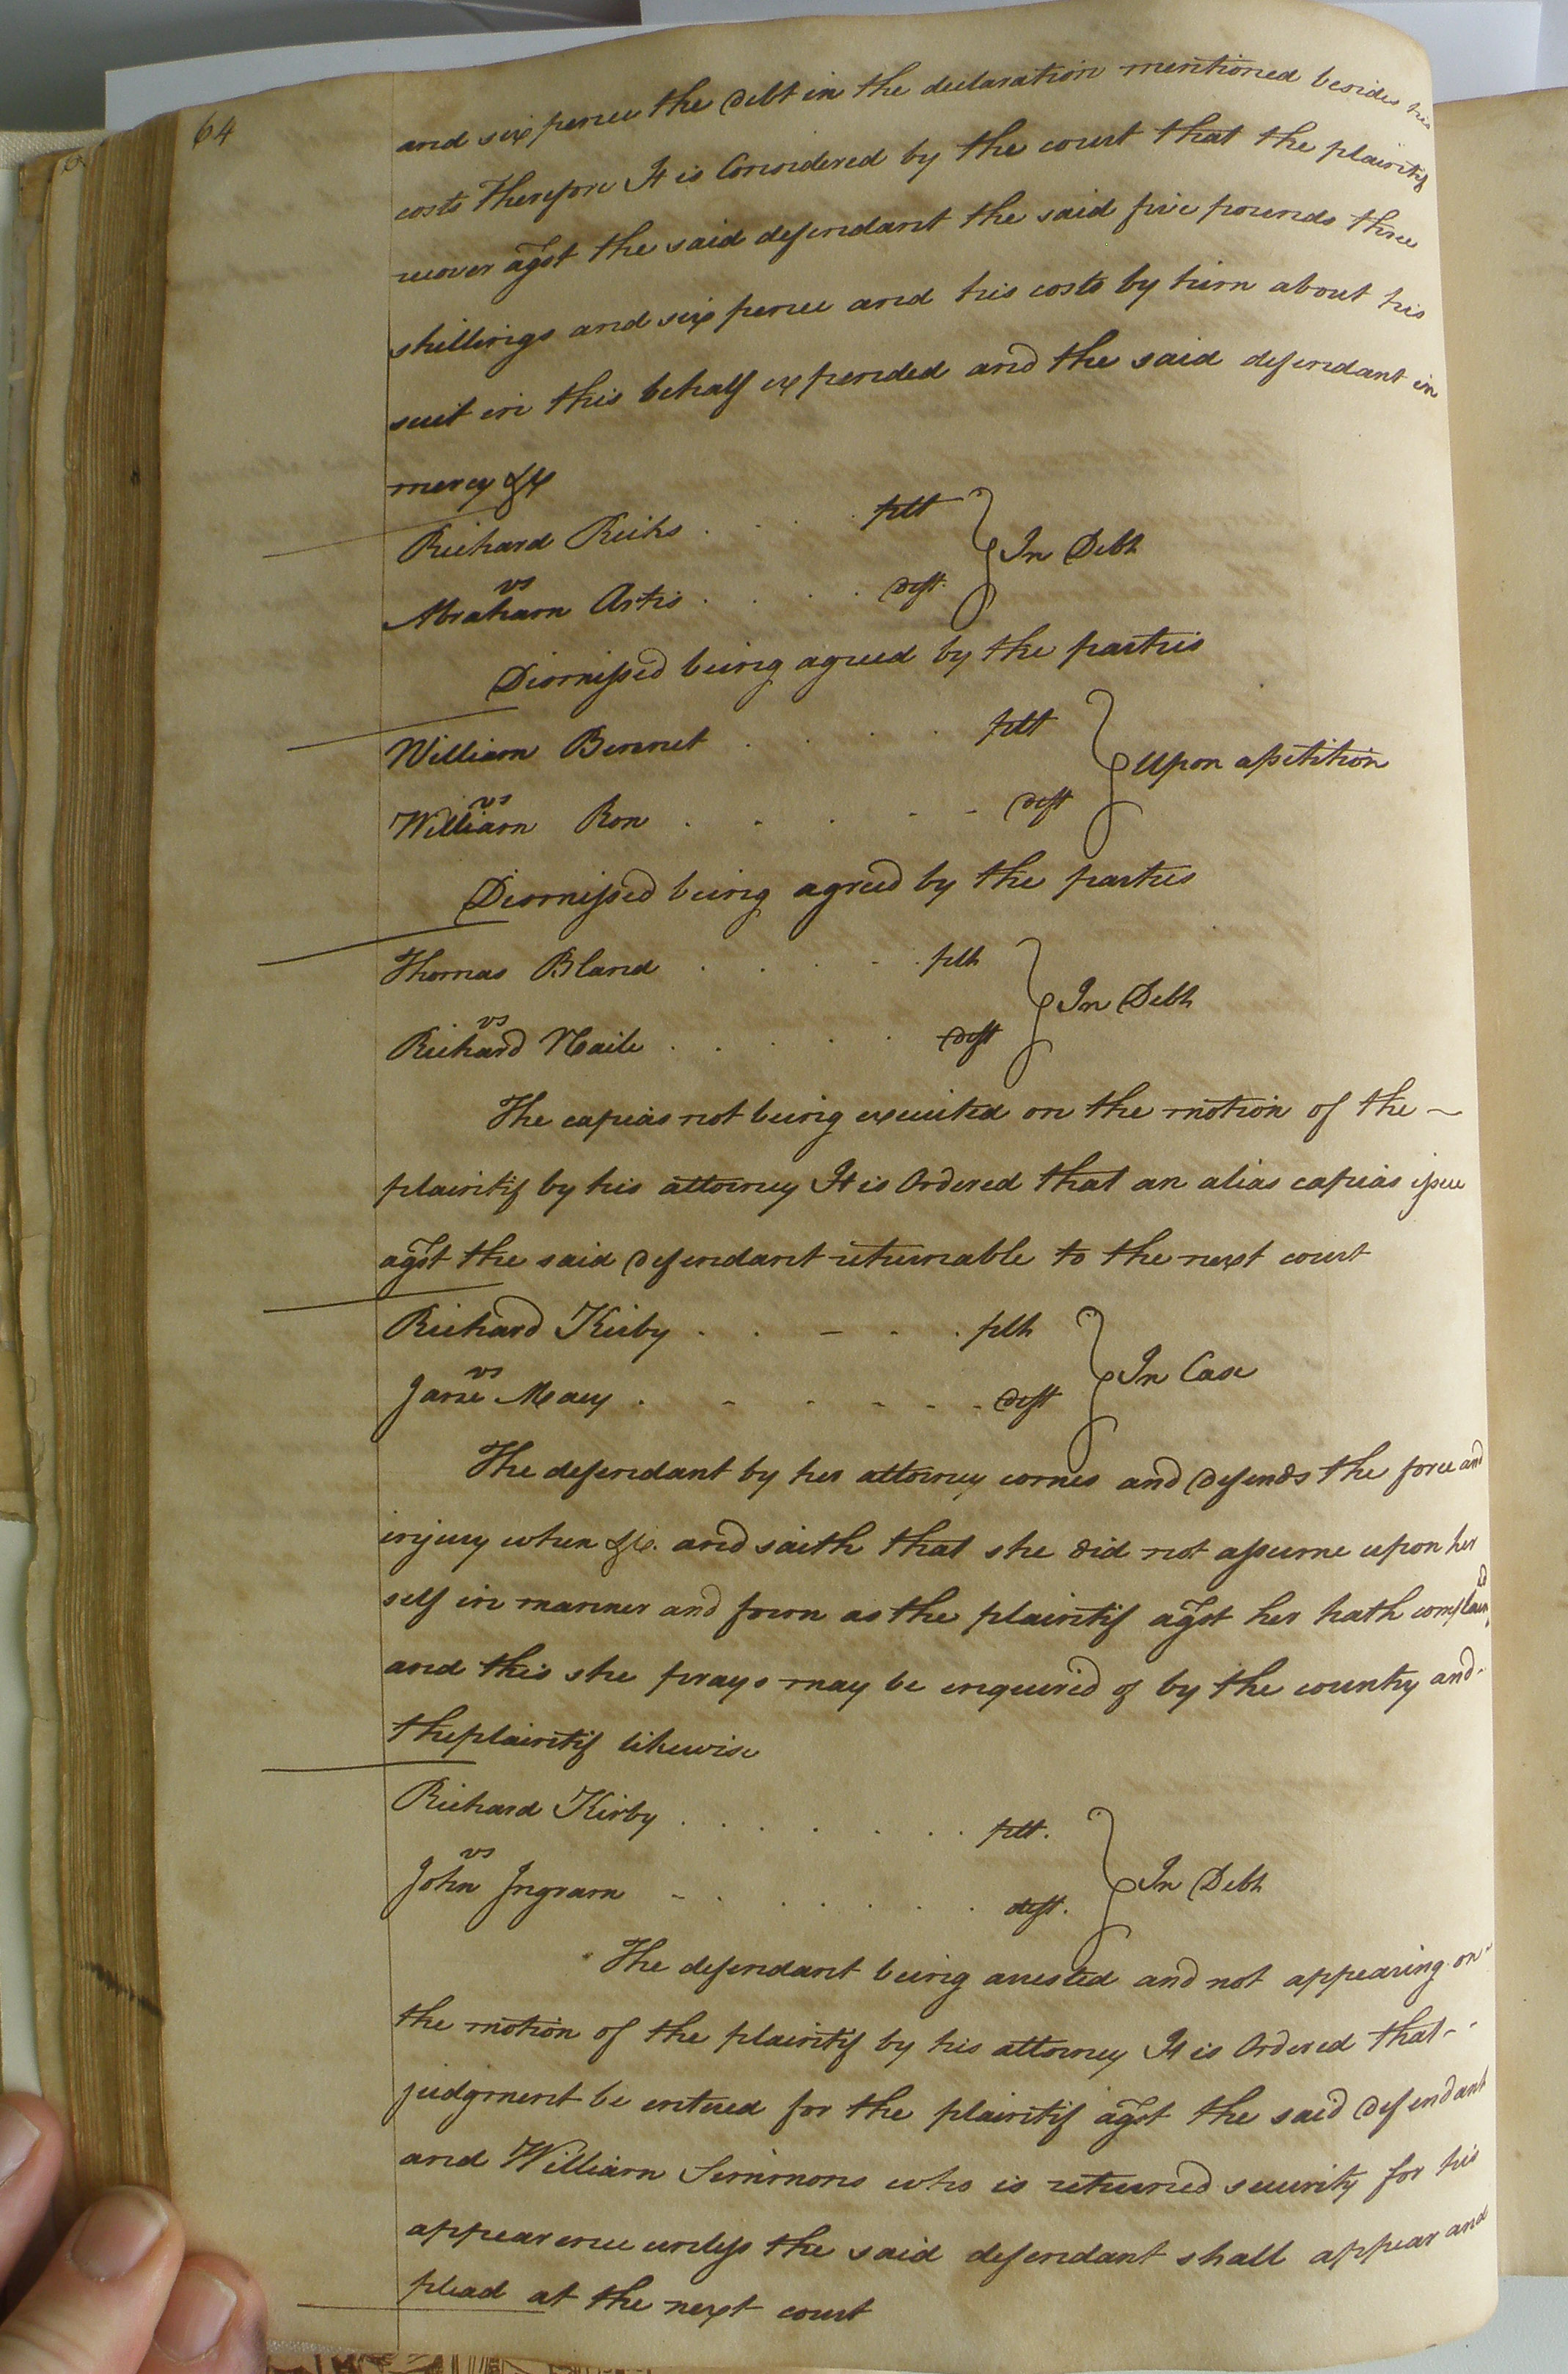 64
and six pence the Debt in the declaration mentioned besides his
costs Therefore It is Considered by the court that the plaintif
recover agst the said defendant the said five pounds three
shillings and six pence and his costs by him about his
suit in this behalf expended and the said defendant in
mercy &c
Richard Ricks . . . . pltt
vs } In Debt
Abraham Artis . . . . Deft.
Dismissed being agreed by the parties
William Bennet . . . . pltt
vs } Upon a petition
William Ron . . . - - Deft
Dismissed being agreed by the parties
Thomas Bland . . . - . plt
vs } In Debt
Richard Naile . . . . . Deft
The capias not being executed on the motion of the -
plaintif by his attorney It is Ordered that an alias capias issue
agst the said Defendant returnable to the next court
Richard Kirby . . - . . plt
vs } In Case
Jane Macy . - - - - - Deft
The defendant by her attorney comes and Defends the force and
injury when &c. and saith that she did not assume upon her
self in manner and form as the plaintif agst her hath complaind
and this she prays may be enquired of by the country and -
the plaintif likewise
Richard Kirby . . . . . . pltt.
vs } In Debt
John Ingram - . . . . . deft.
The defendant being arrested and not appearing on -
the motion of the plaintif by his attorney It is Ordered that - -
judgment be entered for the plaintif agst the said Defendant
and William Simmons who is returned security for his
appearence unless the said defendant shall appear and
plead at the next court